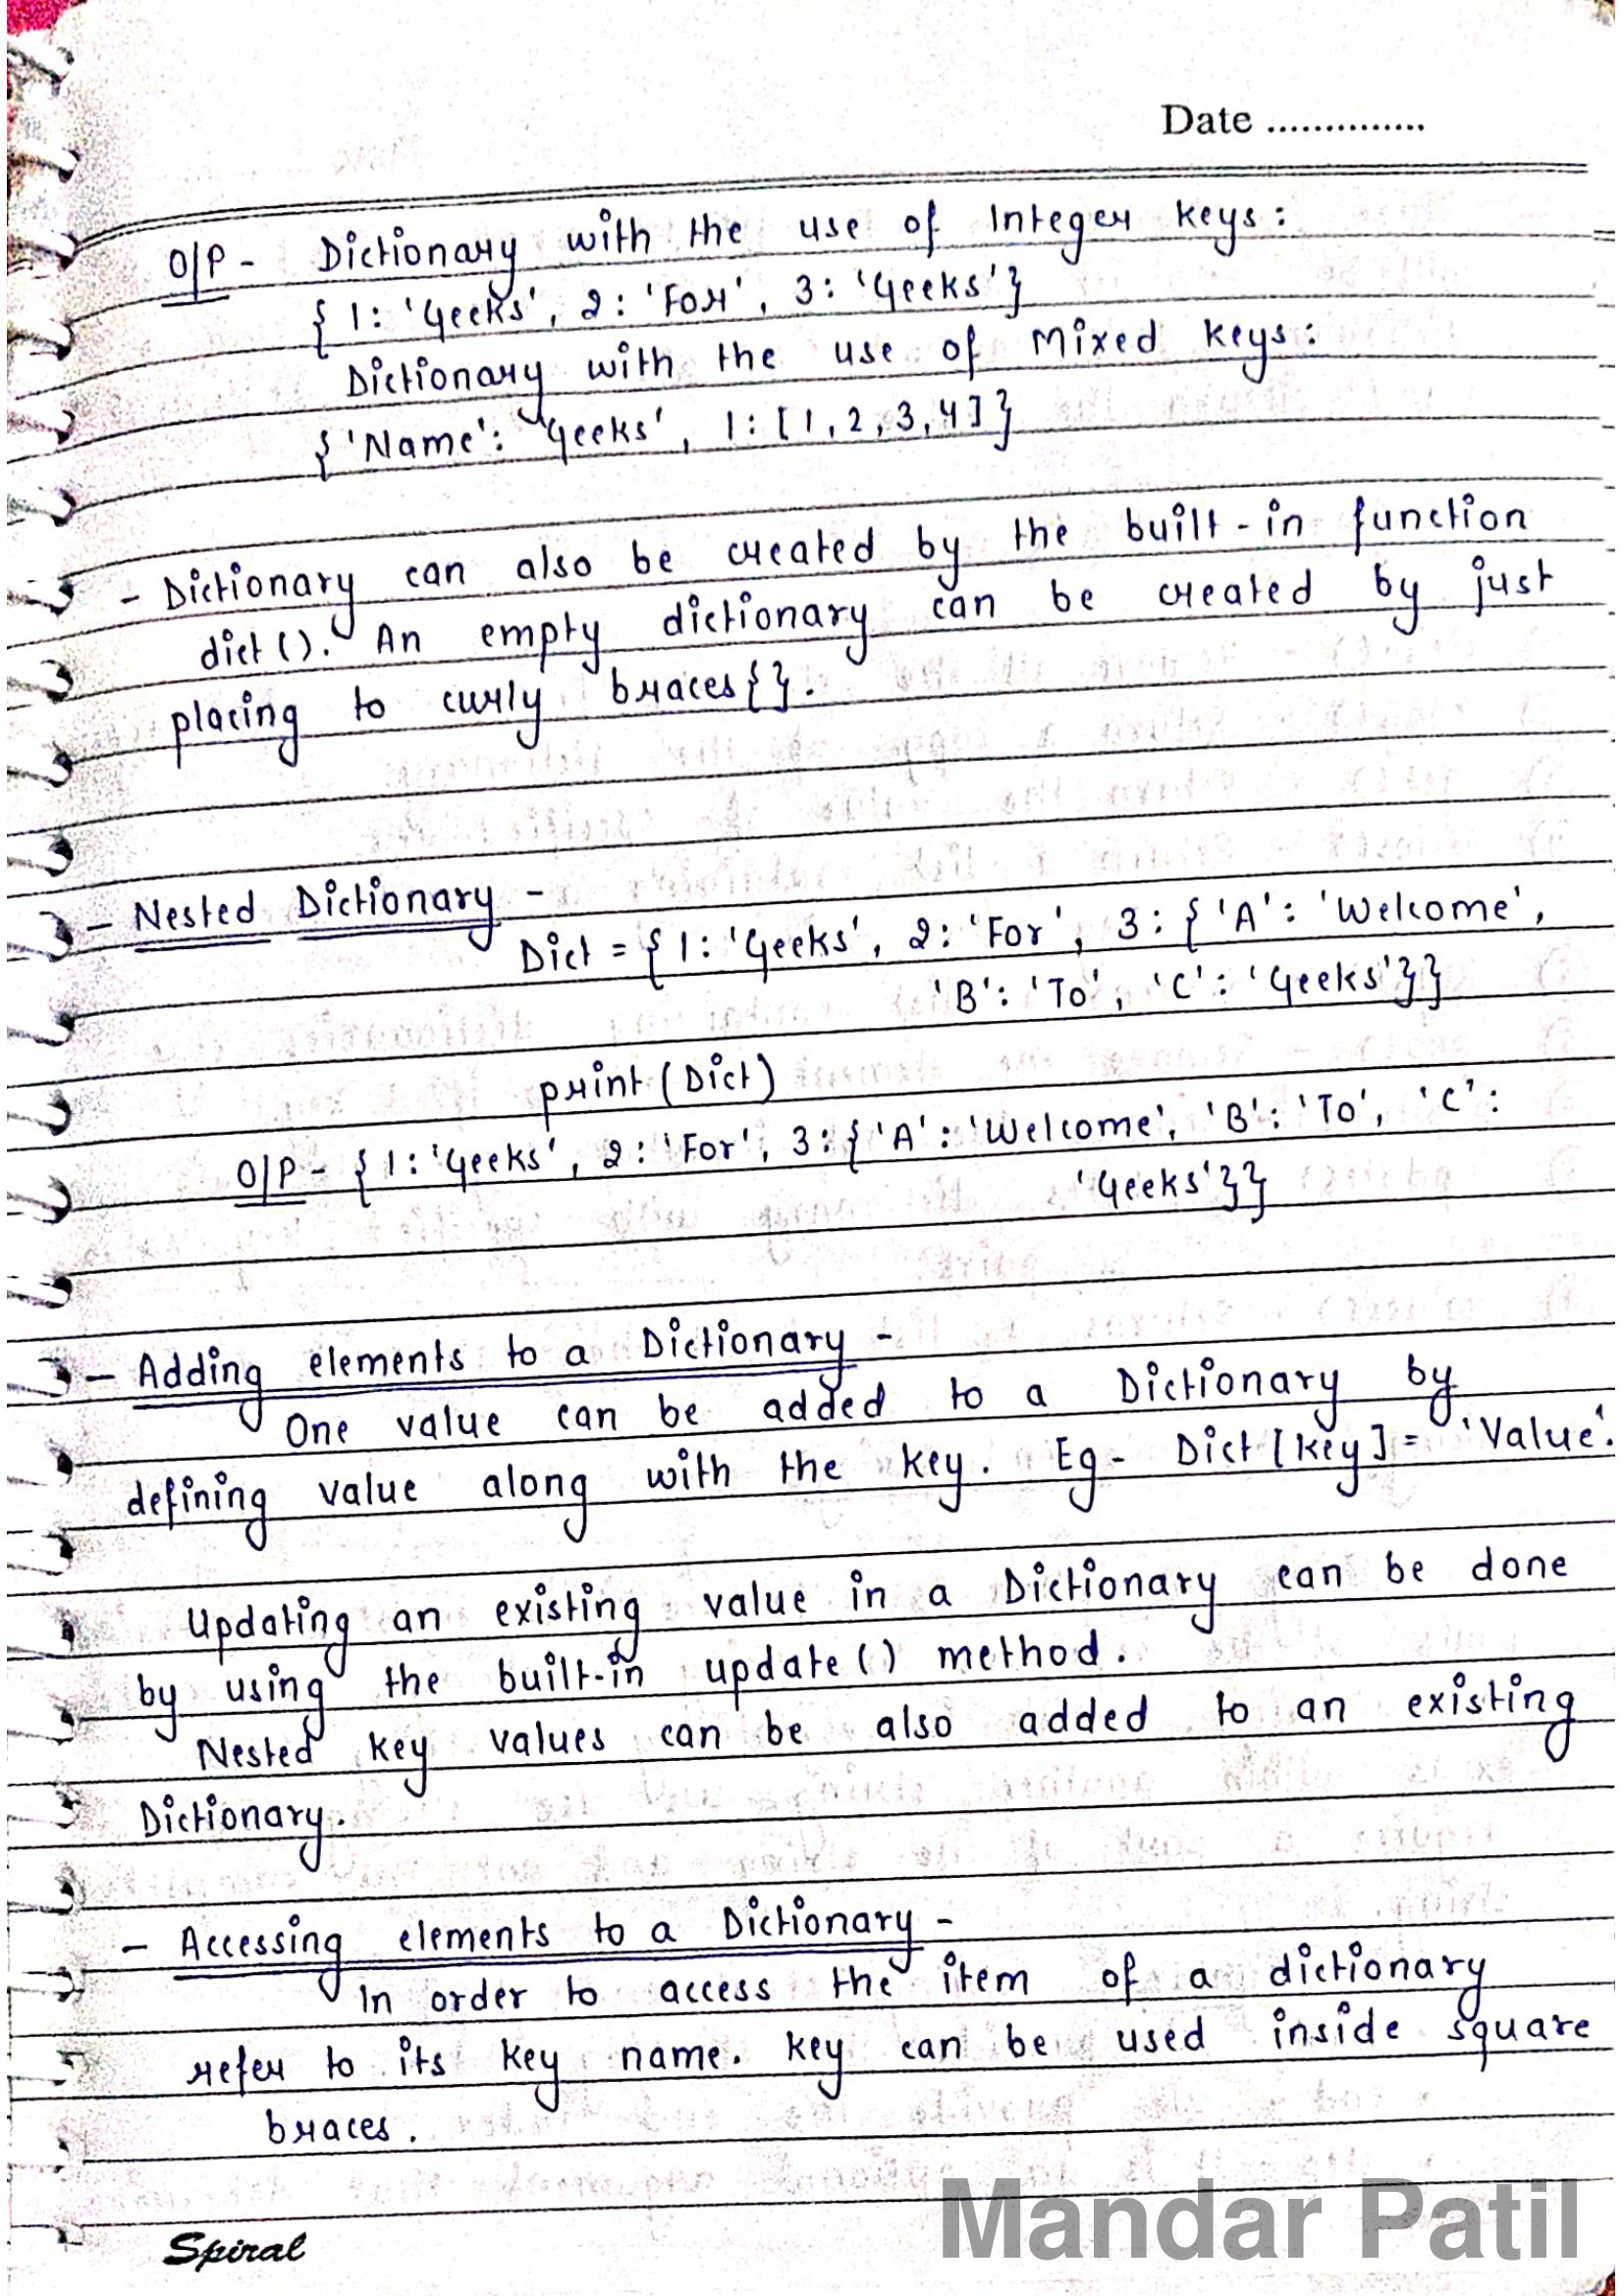 Date ...............
O/P - Dictionary with the use of Integer keys:
{1: 'Geeks', 2: 'For', 3: 'Geeks'}
Dictionary with the use of Mixed keys:
{'Name': 'Geeks', 1: [1, 2, 3, 4]}
- Dictionary can also be created by the built-in function
dict(). An empty dictionary can be created by just
placing to curly braces{}.
- Nested Dictionary -
Dict = {1: 'Geeks', 2: 'For', 3: {'A': 'Welcome',
'B': 'To', 'C': 'Geeks'}}
print(Dict)
O/P - {1: 'Geeks', 2: 'For', 3: {'A': 'Welcome', 'B': 'To', 'C':
'Geeks'}}
- Adding elements to a Dictionary -
One value can be added to a Dictionary by
defining value along with the key. Eg - Dict[key] = 'Value'.
Updating an existing value in a Dictionary can be done
by using the built-in update() method.
Nested key values can be also added to an existing
Dictionary.
- Accessing elements to a Dictionary -
In order to access the item of a dictionary
refer to its key name. key can be used inside square
braces.
Mandar Patil
Spiral